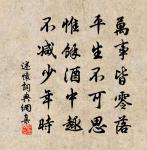 萬事皆零落
平生不可思
惟餘酒中趣
不减少年時
述懷詞典網集